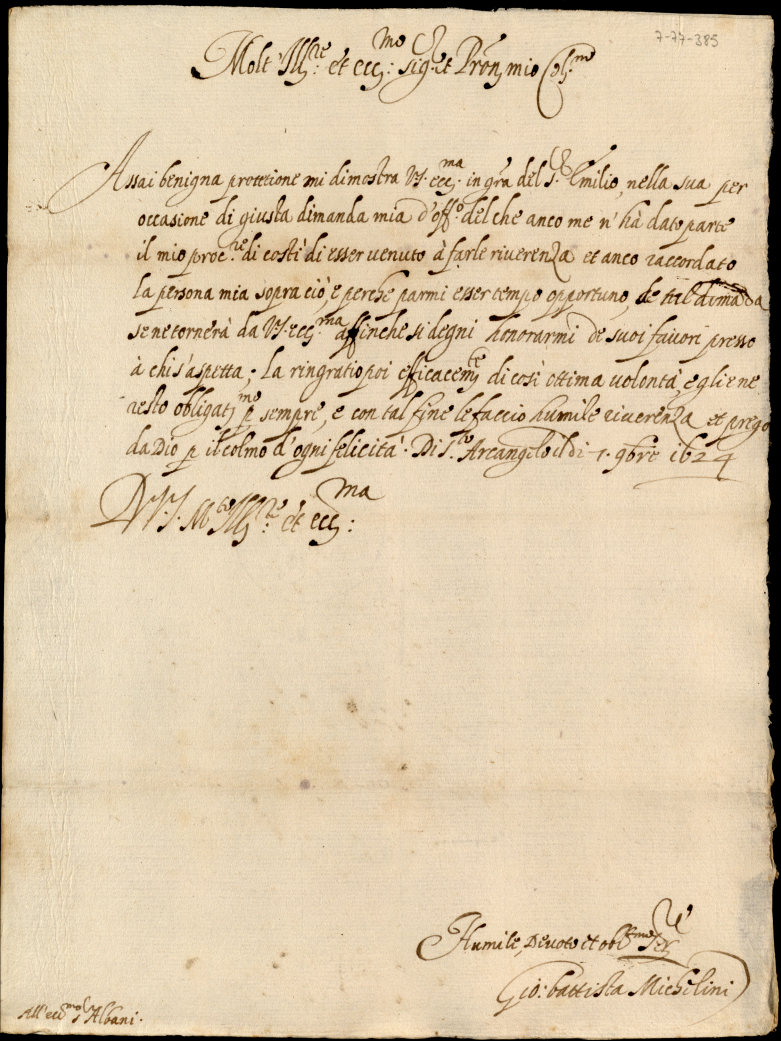 7-77-385
Molt' Ill.re et ecc.mo sig.r et Pron mio Col.mo
Assai benigna protetione mi dimostra V.S. ecc.ma in gra del S.r Emilio, nella sua per
occasione di giusta dimanda mia d'off.o del che anco me n'hà dato parte
il mio proc.re di costì di esser venuto à farle riverenza et anco raccordato
la persona mia sopra ciò, e perche parmi esser tempo opportuno, de tal dimãda
se ne tornerà da V.S. ecc.ma affinche si degni honorarmi de suoi favori presso
à chi s'aspetta; La ringratio poi efficacem.te di così ottima volontà, e gliene
resto obligatiss.mo p sempre, e con tal fine le faccio humile riverenza et prego
da Dio p il colmo d'ogni felicità. Di S.to Arcangelo il dì 1. 9bre 1624
D V.S. M.to Ill.re et ecc.ma
Humile, Devoto et obl.mo Ser.re
Gio: battista Michelini
All'ecc.mo S.r Albani.